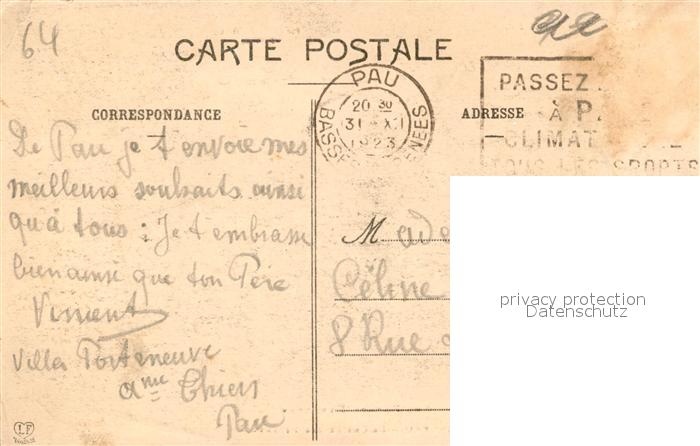 64
CARTE POSTALE
PAU
20 30
31 - XII
1923
BASSES PYRENEES
PASSEZ
À PA
CLIMAT
TOUS LES SPORTS
CORRESPONDANCE
ADRESSE
De Pau je t envoie mes
meilleurs souhaits ainsi
qu'à tous : Je t embrasse
bien ainsi que ton Père
Vincent
Villa Porteneuve
Pau
Made
Céline
8 Rue
privacy protection
Datenschutz
LF